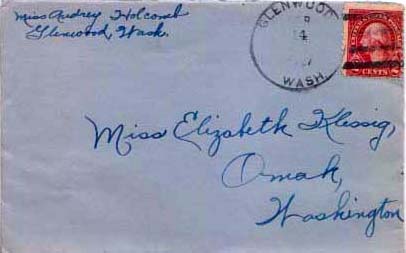 Miss Audrey Holcomb
Glenwood, Wash.
GLENWOOD
4
WASH.
CENTS
Miss Elizabeth Klessig,
Omak,
Washington